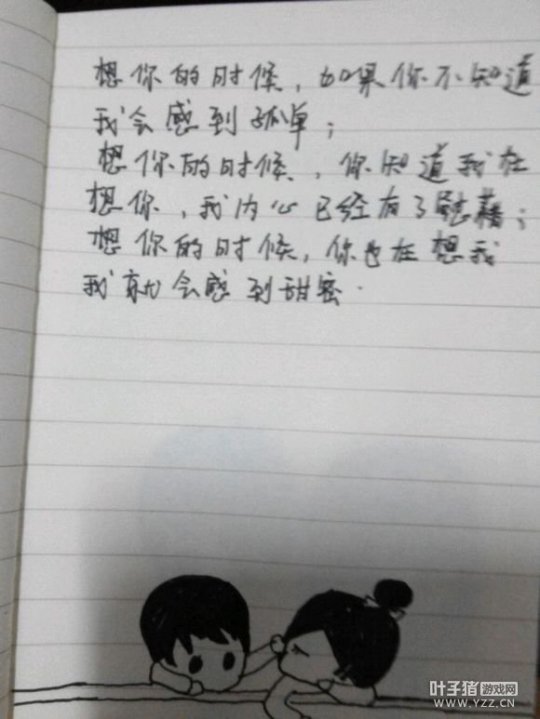 想你的时候，如果你不知道
我会感到孤单；
想你的时候，你知道我在
想你，我内心已经有了慰藉；
想你的时候，你也在想我
我就会感到甜密．
叶子猪游戏网
WWW.YZZ.CN